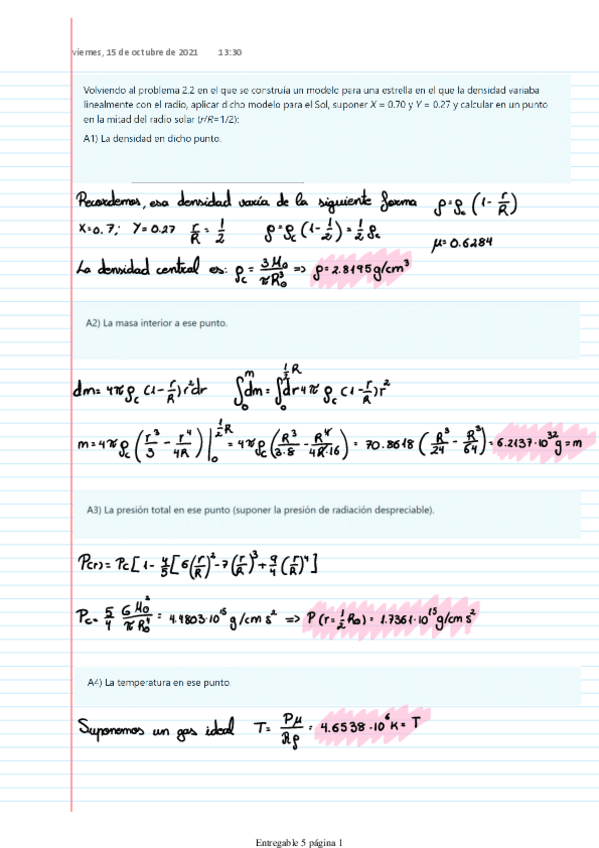 viernes, 15 de octubre de 2021 13:30
Volviendo al problema 2.2 en el que se construía un modelo para una estrella en el que la densidad variaba
linealmente con el radio, aplicar dicho modelo para el Sol, suponer X = 0.70 y Y = 0.27 y calcular en un punto
en la mitad del radio solar (r/R=1/2):
A1) La densidad en dicho punto.
Recordemos, esa densidad varía de la siguiente forma ρ=ρc (1- r/R)
X=0.7; Y=0.27 r/R = 1/2 ρ=ρc (1-1/2) = 1/2 ρc μ=0.6284
La densidad central es: ρc = 3M⊙/πR⊙³ => ρ=2.8195g/cm³
A2) La masa interior a ese punto.
dm= 4πρc (1- r/R) r²dr ∫₀ᵐ dm= ∫₀^(1/2 R) dr 4π ρc (1- r/R) r²
m=4πρc (r³/3 - r⁴/4R) |₀^(1/2 R) = 4πρc (R³/3·8 - R⁴/4R·16) = 70.8618 (R³/24 - R³/64) = 6.2137·10³² g = m
A3) La presión total en ese punto (suponer la presión de radiación despreciable).
P(r)= Pc [1- 4/5 [6(r/R)² -7(r/R)³ + 9/4 (r/R)⁴]
Pc= 5/4 G M⊙²/π R⊙⁴ = 4.4803·10¹⁵ g/cm s² => P(r=1/2 R⊙) = 1.7361·10¹⁵ g/cm s²
A4) La temperatura en ese punto.
Suponemos un gas ideal T= Pμ/Rρ = 4.6538·10⁶ K = T
Entregable 5 página 1